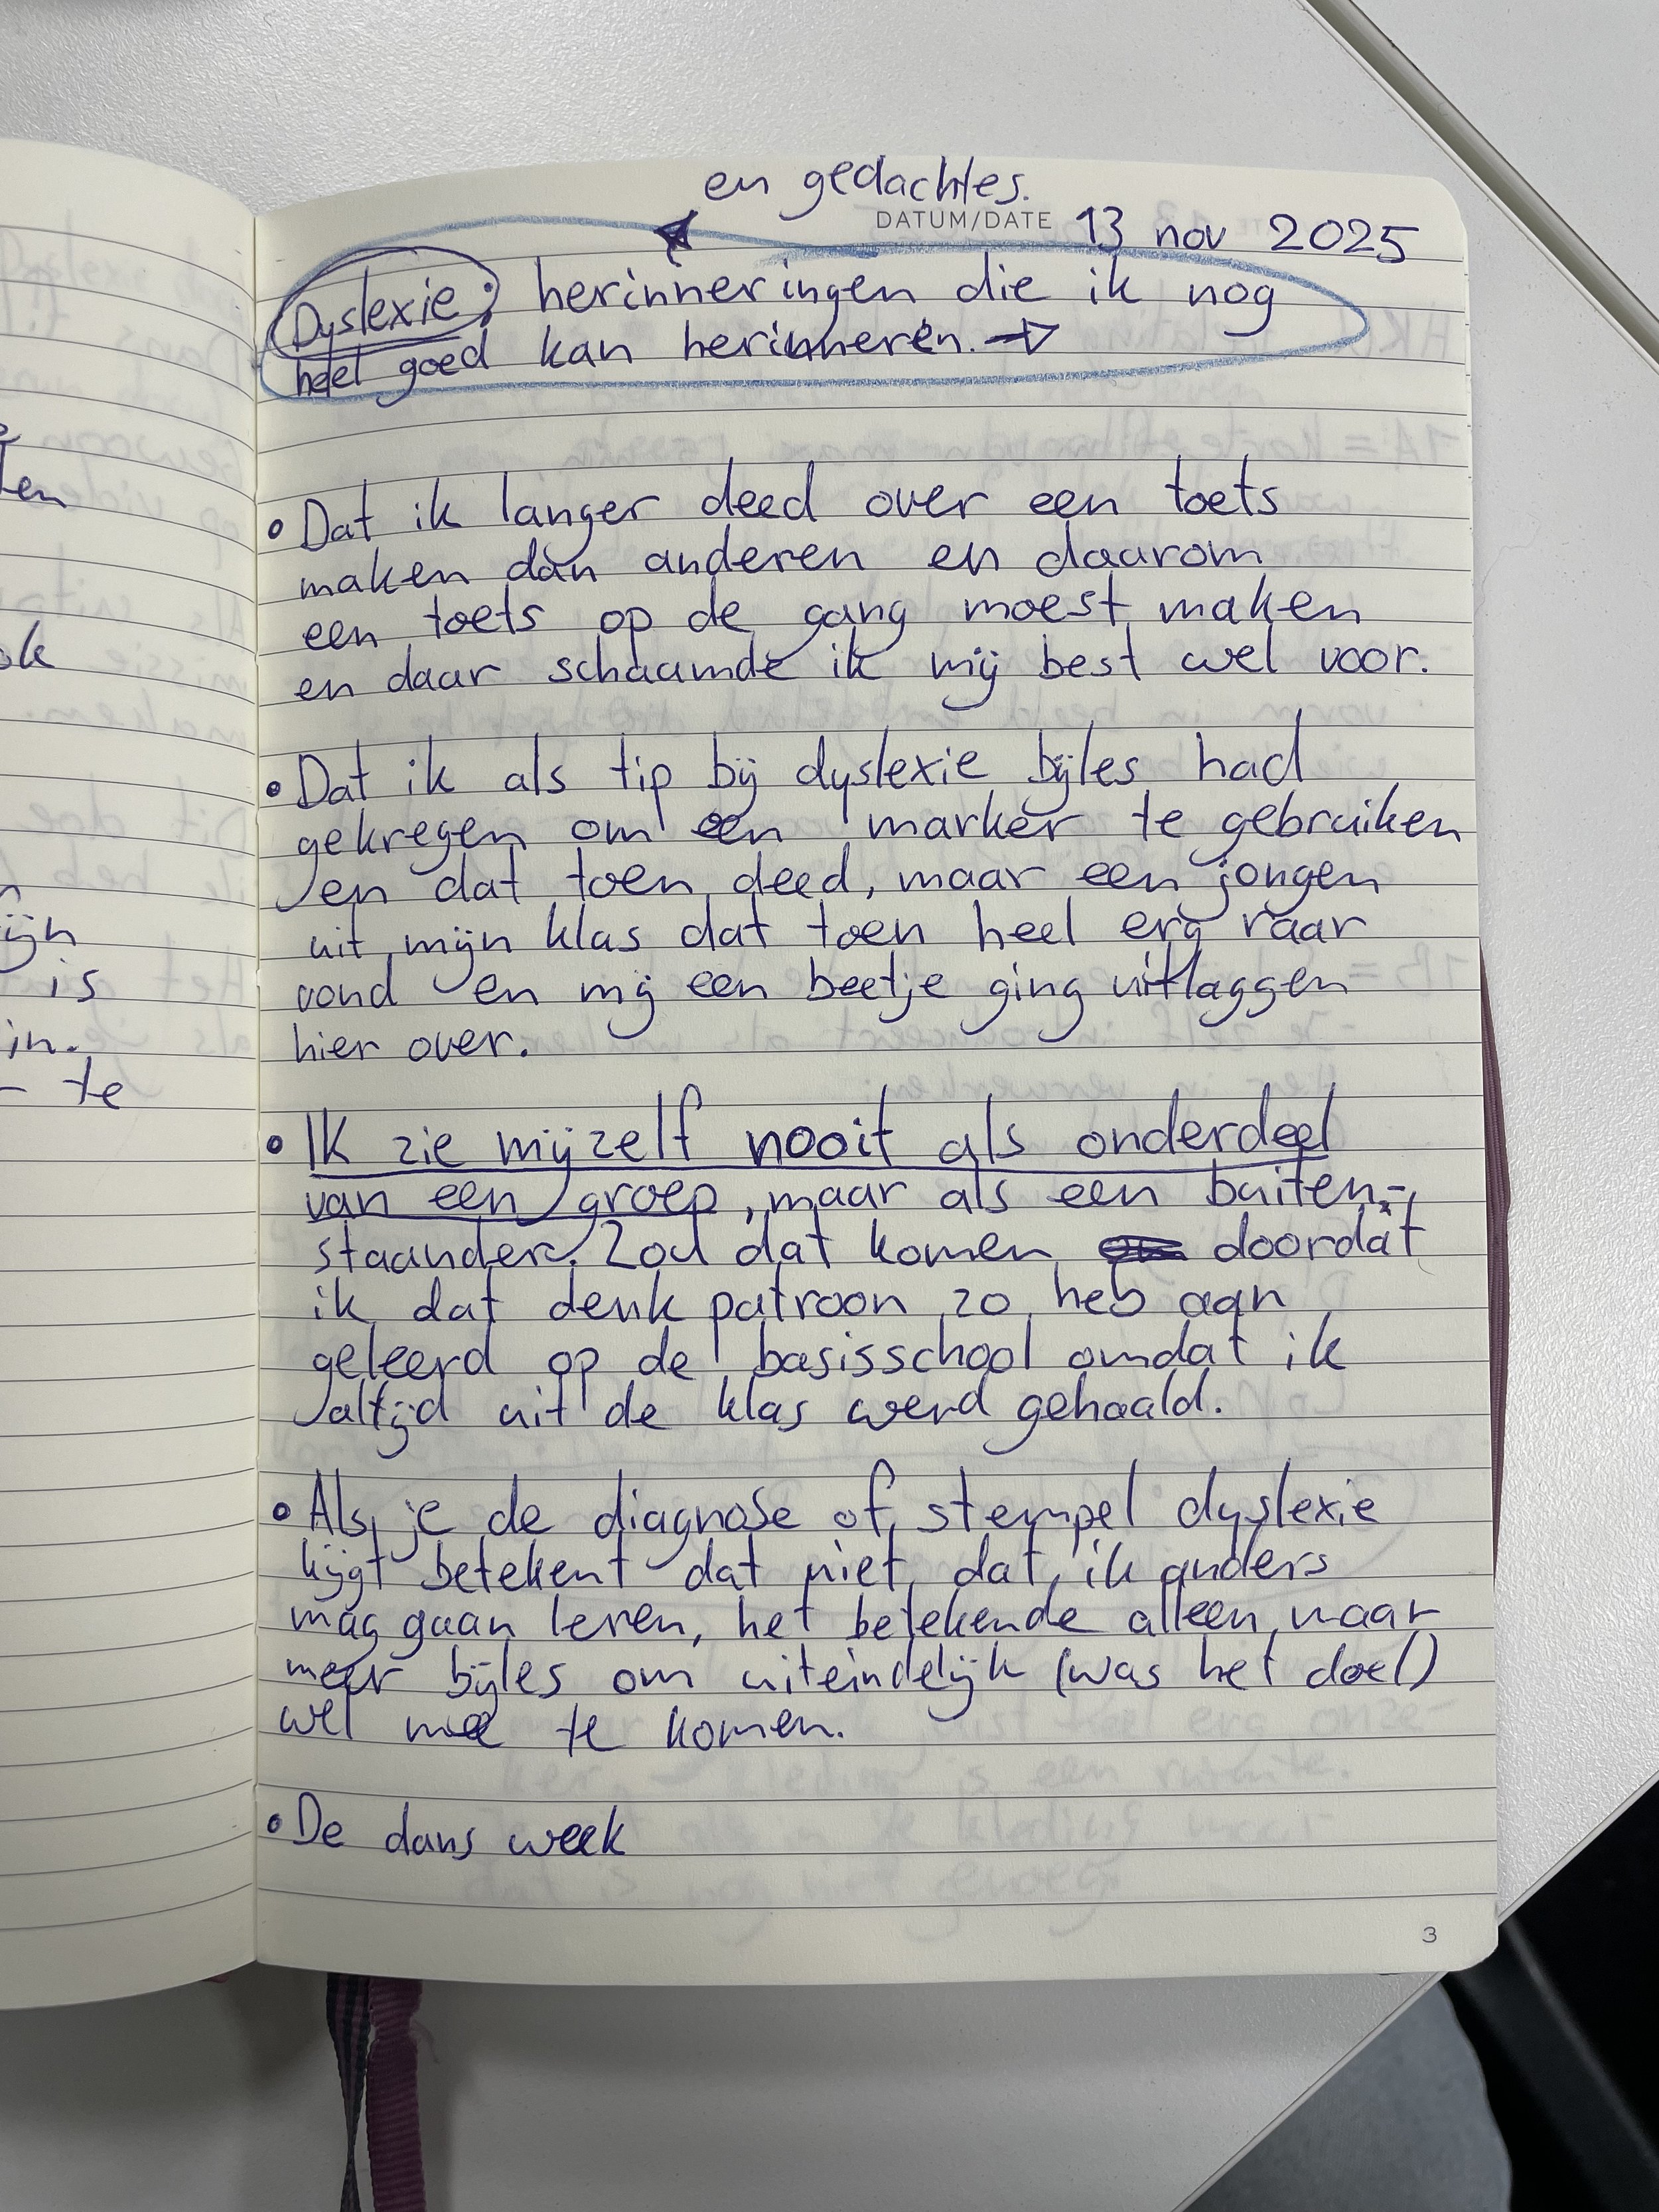 en gedachtes.
DATUM/DATE 13 nov 2025
Dyslexie: herinneringen die ik nog
heel goed kan herinneren. →
• Dat ik langer deed over een toets
maken dan anderen en daarom
een toets op de gang moest maken
en daar schaamde ik mij best wel voor.
• Dat ik als tip bij dyslexie bijles had
gekregen om een marker te gebruiken
en dat toen deed, maar een jongen
uit mijn klas dat toen heel erg raar
vond en mij een beetje ging uitlaggen
hier over.
• Ik zie mijzelf nooit als onderdeel
van een groep, maar als een buiten-
staander. Zou dat komen doordat
ik dat denk patroon zo heb aan
geleerd op de basisschool omdat ik
altijd uit de klas werd gehaald.
• Als je de diagnose of stempel dyslexie
kijgt betekent dat niet dat ik anders
mag gaan leren, het betekende alleen maar
meer bijles om uiteindelijk (was het doel)
wel mee te komen.
• De dans week
3
ten
ok
ijn
is
in.
- te